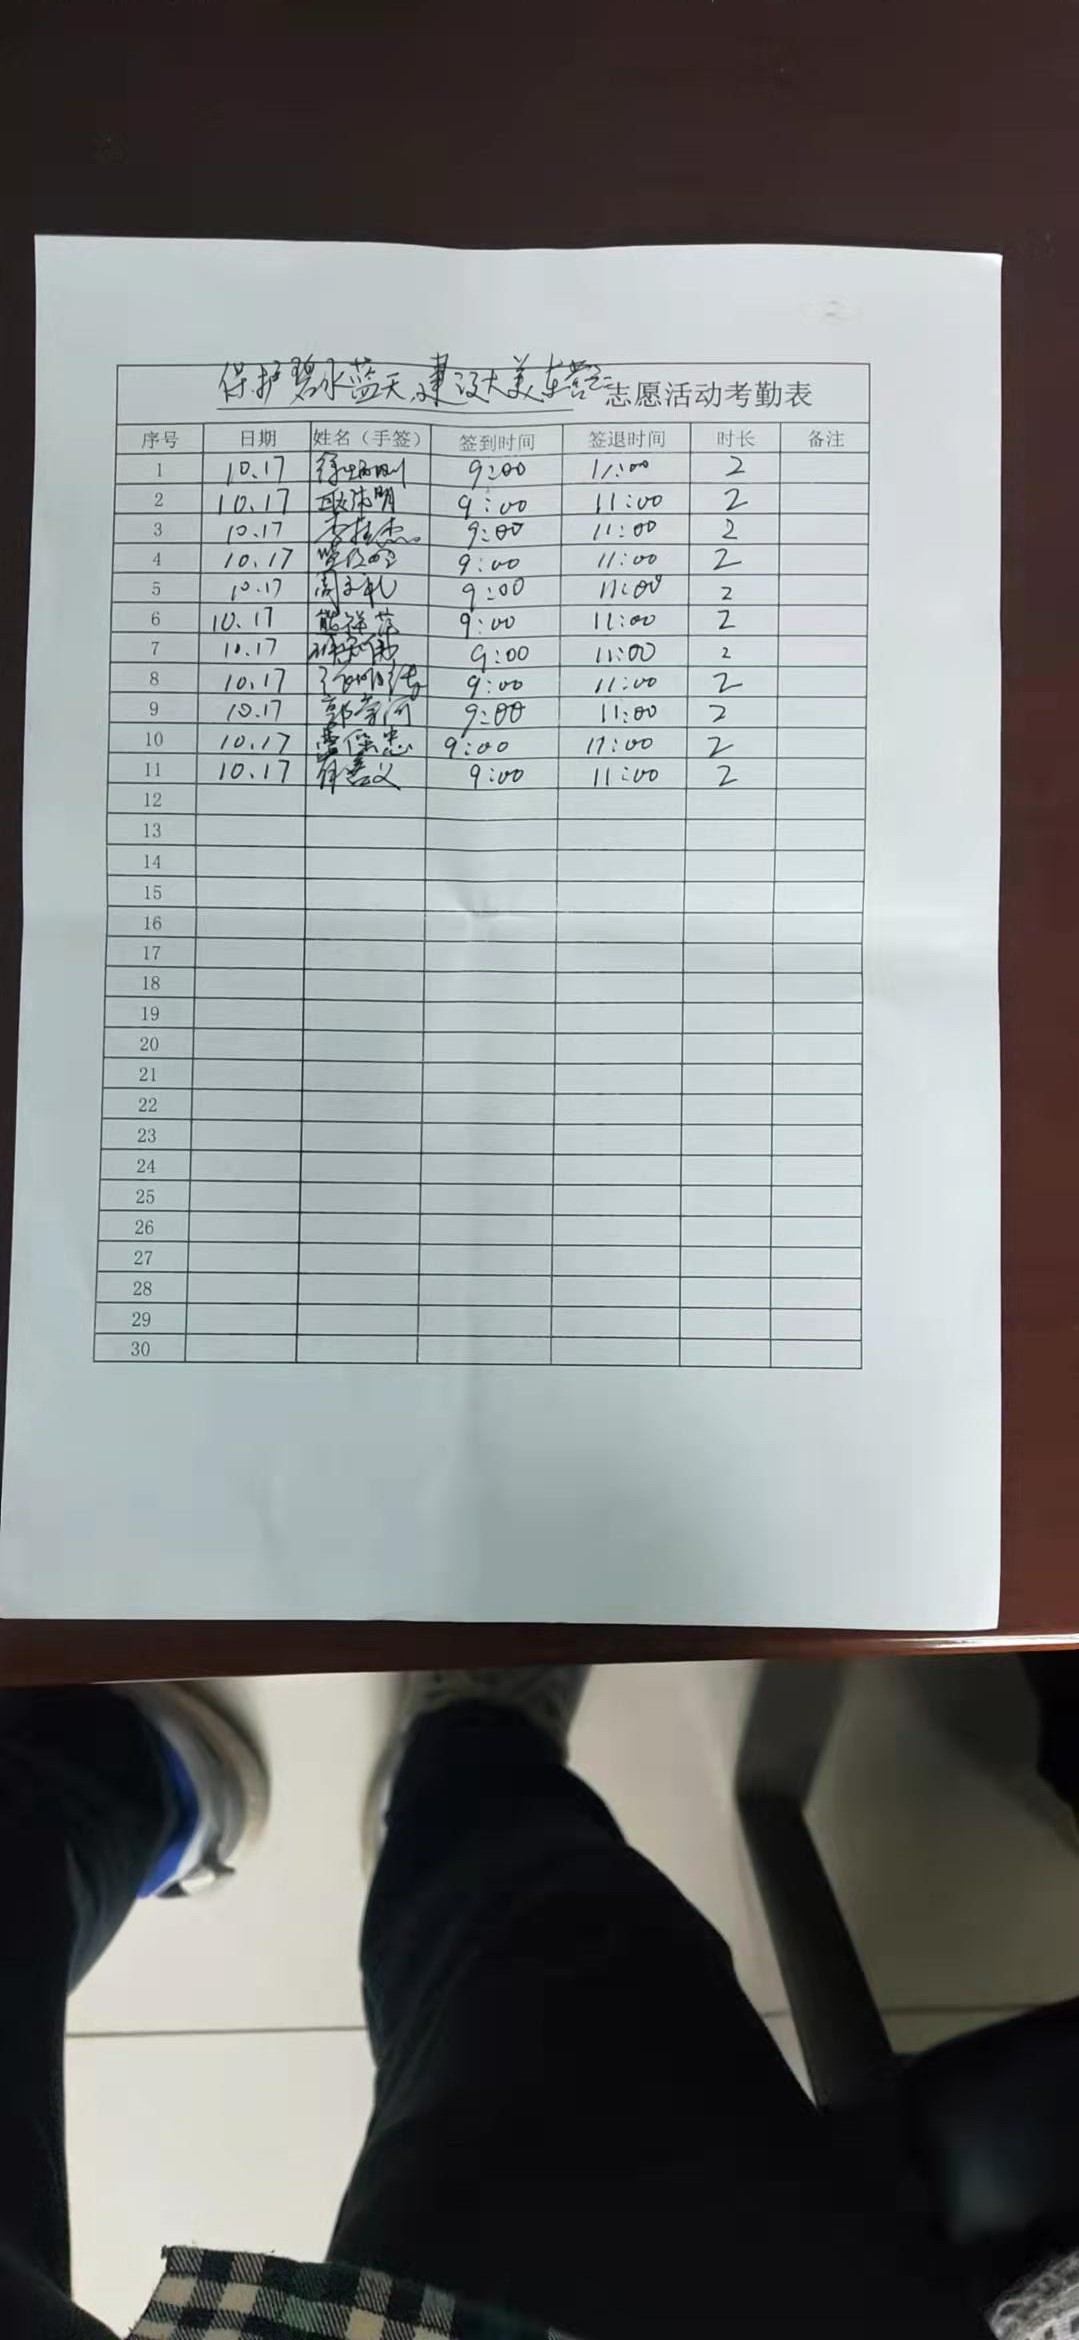 保护碧水蓝天,建设大美东营 志愿活动考勤表
序号 日期 姓名（手签） 签到时间 签退时间 时长 备注
1 10.17 9:00 11:00 2
2 10.17 9:00 11:00 2
3 10.17 9:00 11:00 2
4 10.17 9:00 11:00 2
5 10.17 周文礼 9:00 11:00 2
6 10.17 熊祥 9:00 11:00 2
7 10.17 9:00 11:00 2
8 10.17 9:00 11:00 2
9 10.17 郭学河 9:00 11:00 2
10 10.17 保忠 9:00 11:00 2
11 10.17 善义 9:00 11:00 2
12
13
14
15
16
17
18
19
20
21
22
23
24
25
26
27
28
29
30